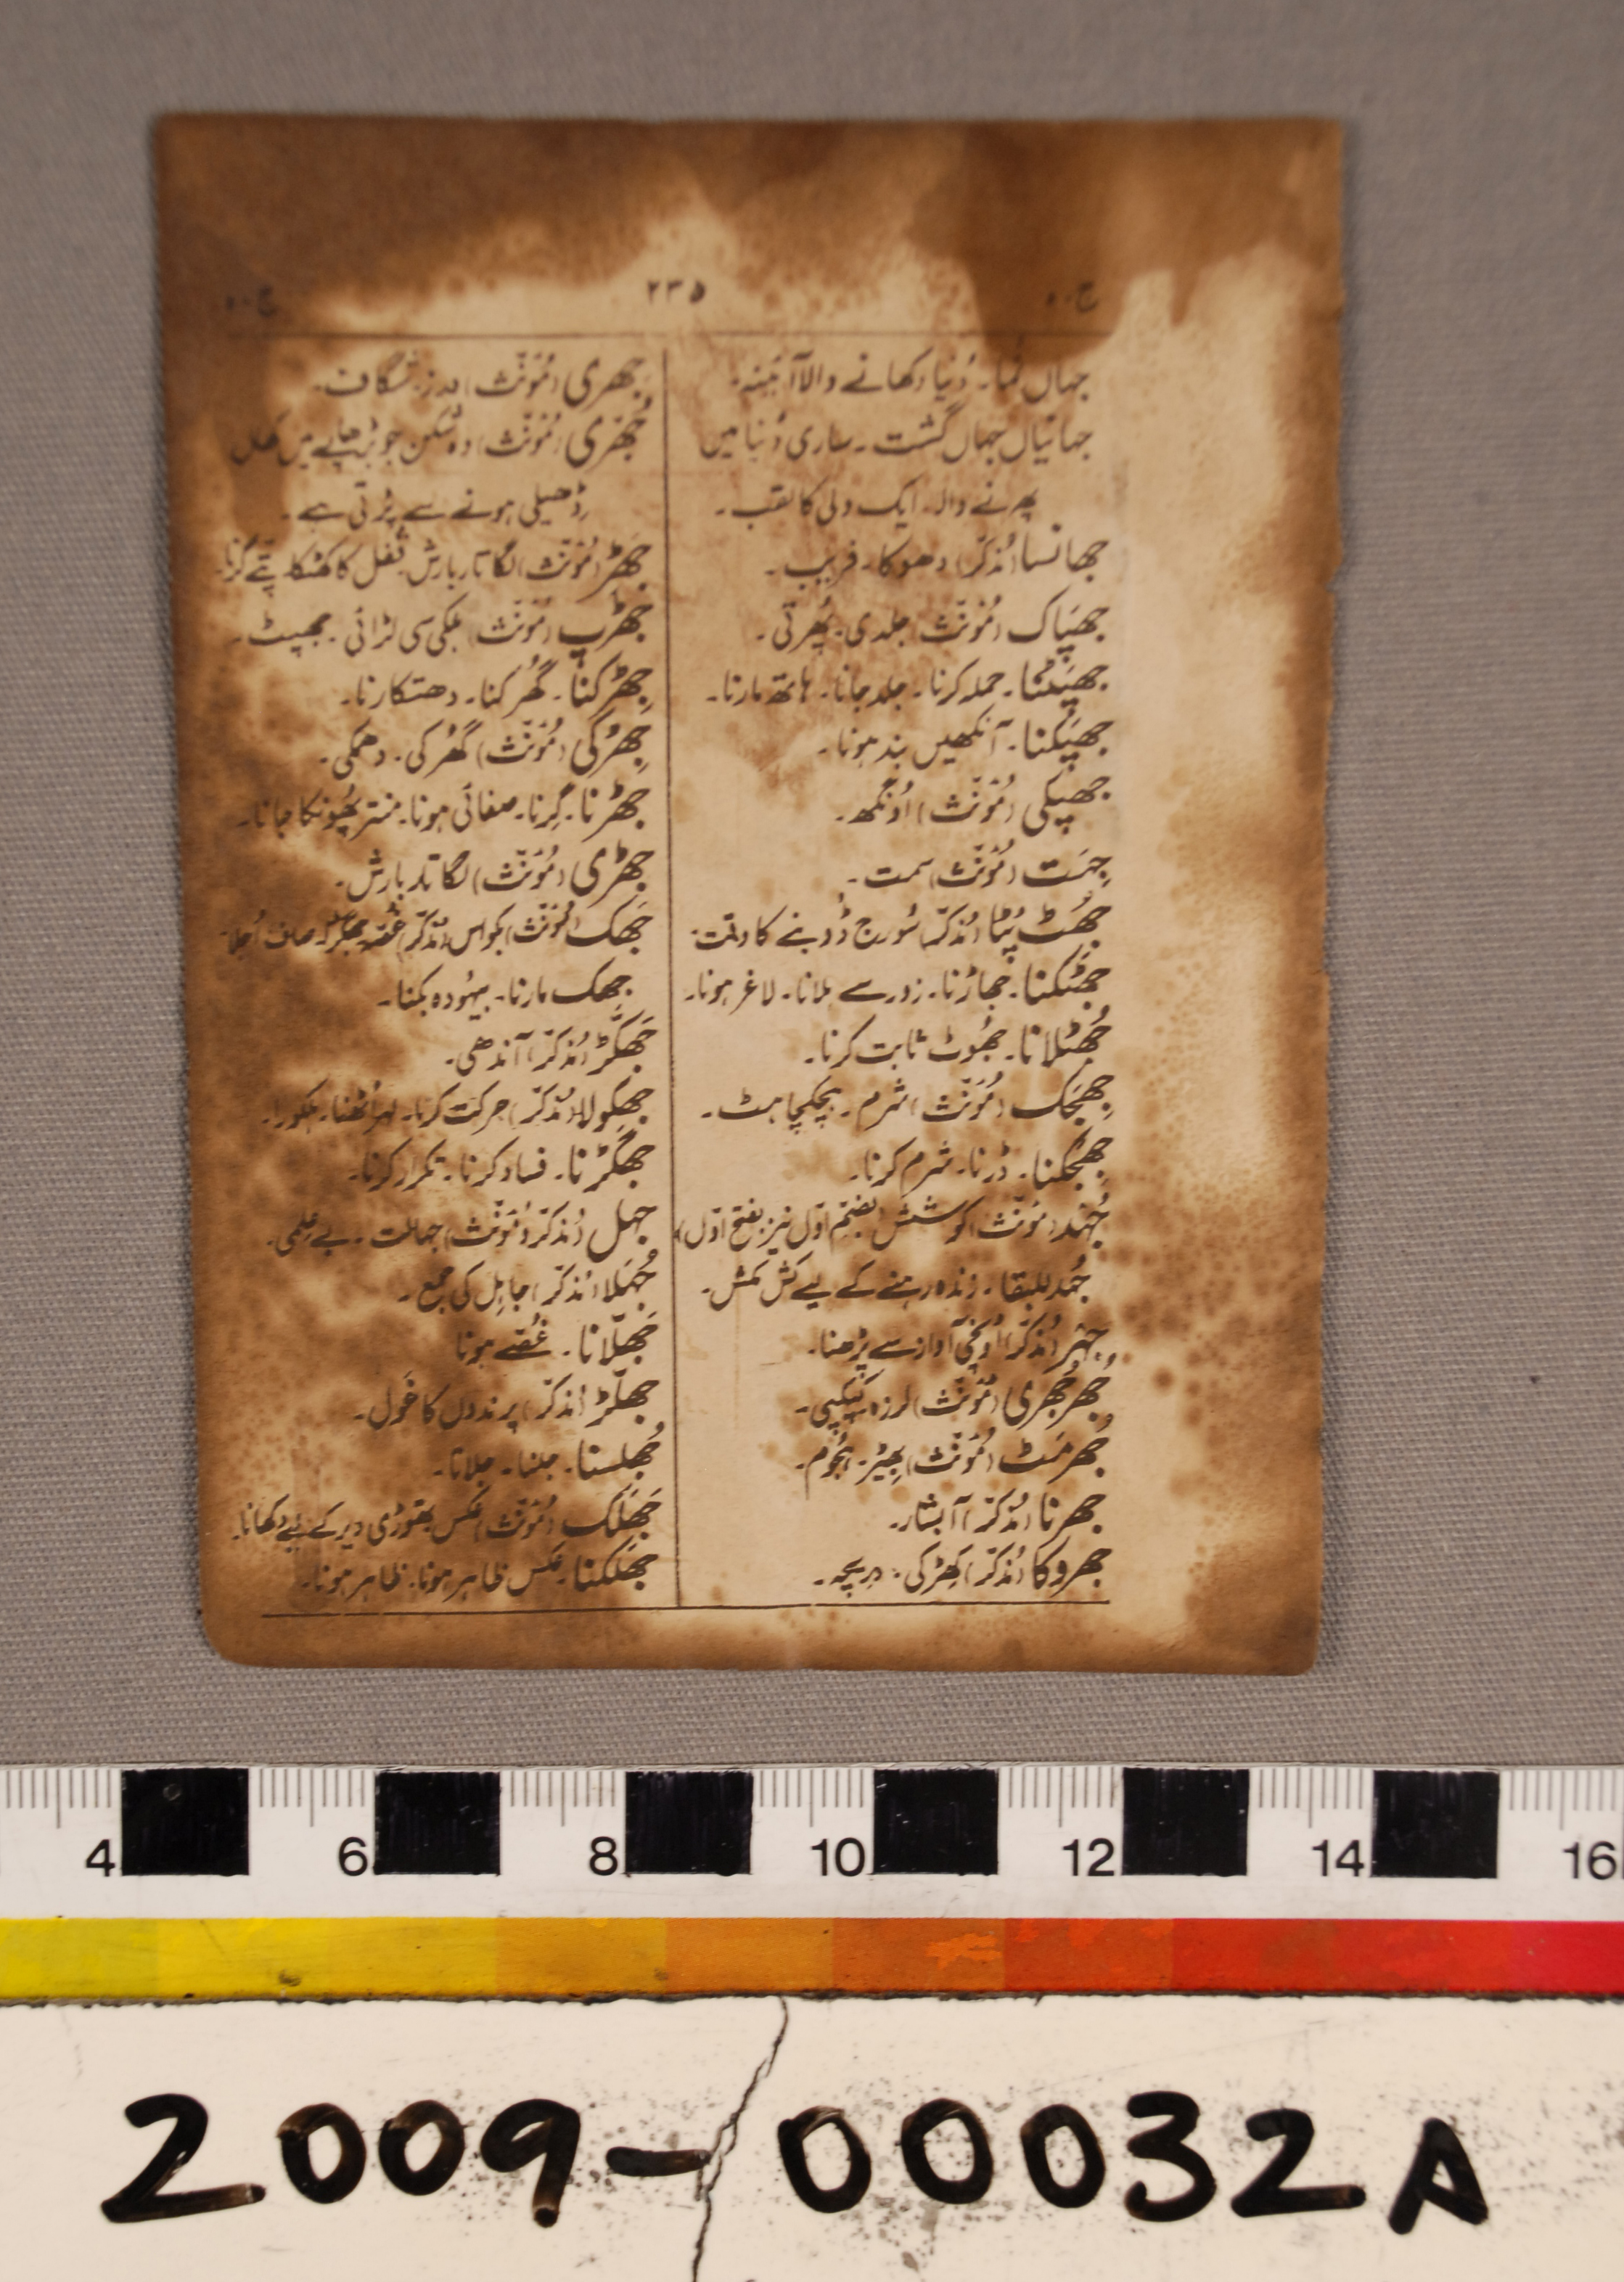 ج۔ہ
۲۳۵
ج۔ہ
جہاں نُما۔ دُنیا دکھانے والا آئینہ۔
جہانیاں جہاں گشت۔ ساری دُنیا میں
پھرنے والا۔ ایک ولی کا لقب۔
جھانسا (مُذکّر) دھوکا۔ فریب۔
جھپاک (مُؤنّث) جلدی۔ پُھرتی۔
جھپٹنا۔ حملہ کرنا۔ جلد جانا۔ ہاتھ مارنا۔
جھپکنا۔ آنکھیں بند ہونا۔
جھپکی (مُؤنّث) اُونگھ۔
جِہَت (مُؤنّث) سمت۔
جُھٹ پُٹا (مُذکّر) سُورج ڈوبنے کا وقت۔
جھٹکنا۔ جھاڑنا۔ زور سے ہلانا۔ لاغر ہونا۔
جُھٹلانا۔ جُھوٹ ثابت کرنا۔
جِھجک (مُؤنّث) شرم۔ ہچکچاہٹ۔
جِھجکنا۔ ڈرنا۔ شرم کرنا۔
جُہد (مُؤنّث) کوشش (بضمّ اوّل نیز بفتح اوّل)
جُہد للبقا۔ زندہ رہنے کے لیے کش مکش۔
جہر (مُذکّر) اُونچی آواز سے پڑھنا۔
جُھرجُھری (مُؤنّث) لرزہ کپکپی۔
جُھرمَٹ (مُؤنّث) بِھیڑ۔ ہُجوم۔
جھرنا (مُذکّر) آبشار۔
جھروکا (مُذکّر) کِھڑکی۔ دریچہ۔
جِھری (مُؤنّث) درز۔ شگاف۔
جُھرّی (مُؤنّث) وہ شکن جو بڑھاپے میں کھال
ڈھیلی ہونے سے پڑتی ہے۔
جَھڑ (مُؤنّث) لگاتار بارش۔ قُفل کا کھٹکا۔ پتّے گرنا۔
جھڑپ (مُؤنّث) ہلکی سی لڑائی۔ جھپٹ۔
جِھڑکنا۔ گُھرکنا۔ دھتکارنا۔
جِھڑکی (مُؤنّث) گُھرکی۔ دھمکی۔
جھڑنا۔ گِرنا۔ صفائی ہونا۔ منتر پُھونکا جانا۔
جھڑی (مُؤنّث) لگاتار بارش۔
جَھک (مُؤنّث) بکواس (مُذکّر) غُصّہ۔ صاف اُجلا۔
جھک مارنا۔ بیہُودہ بکنا۔
جَھکّڑ (مُذکّر) آندھی۔
جھکولا (مُذکّر) حرکت کرنا۔ لہر اُٹھنا۔ ہکورا۔
جھگڑنا۔ فساد کرنا۔ تکرار کرنا۔
جہل (مُذکّر و مُؤنّث) جہالت۔ بے عِلمی۔
جُہَلا (مُذکّر) جاہِل کی جمع۔
جَھلّانا۔ غُصّے ہونا
جھلّڑ (مُذکّر) پرندوں کا غَول۔
جُھلسنا۔ جلنا۔ جلانا۔
جَھلک (مُؤنّث) عکس۔ تھوڑی دیر کے لیے دکھانا۔
جَھلکنا۔ عکس ظاہر ہونا۔ ظاہر ہونا۔
4 6 8 10 12 14 16
2009-00032A